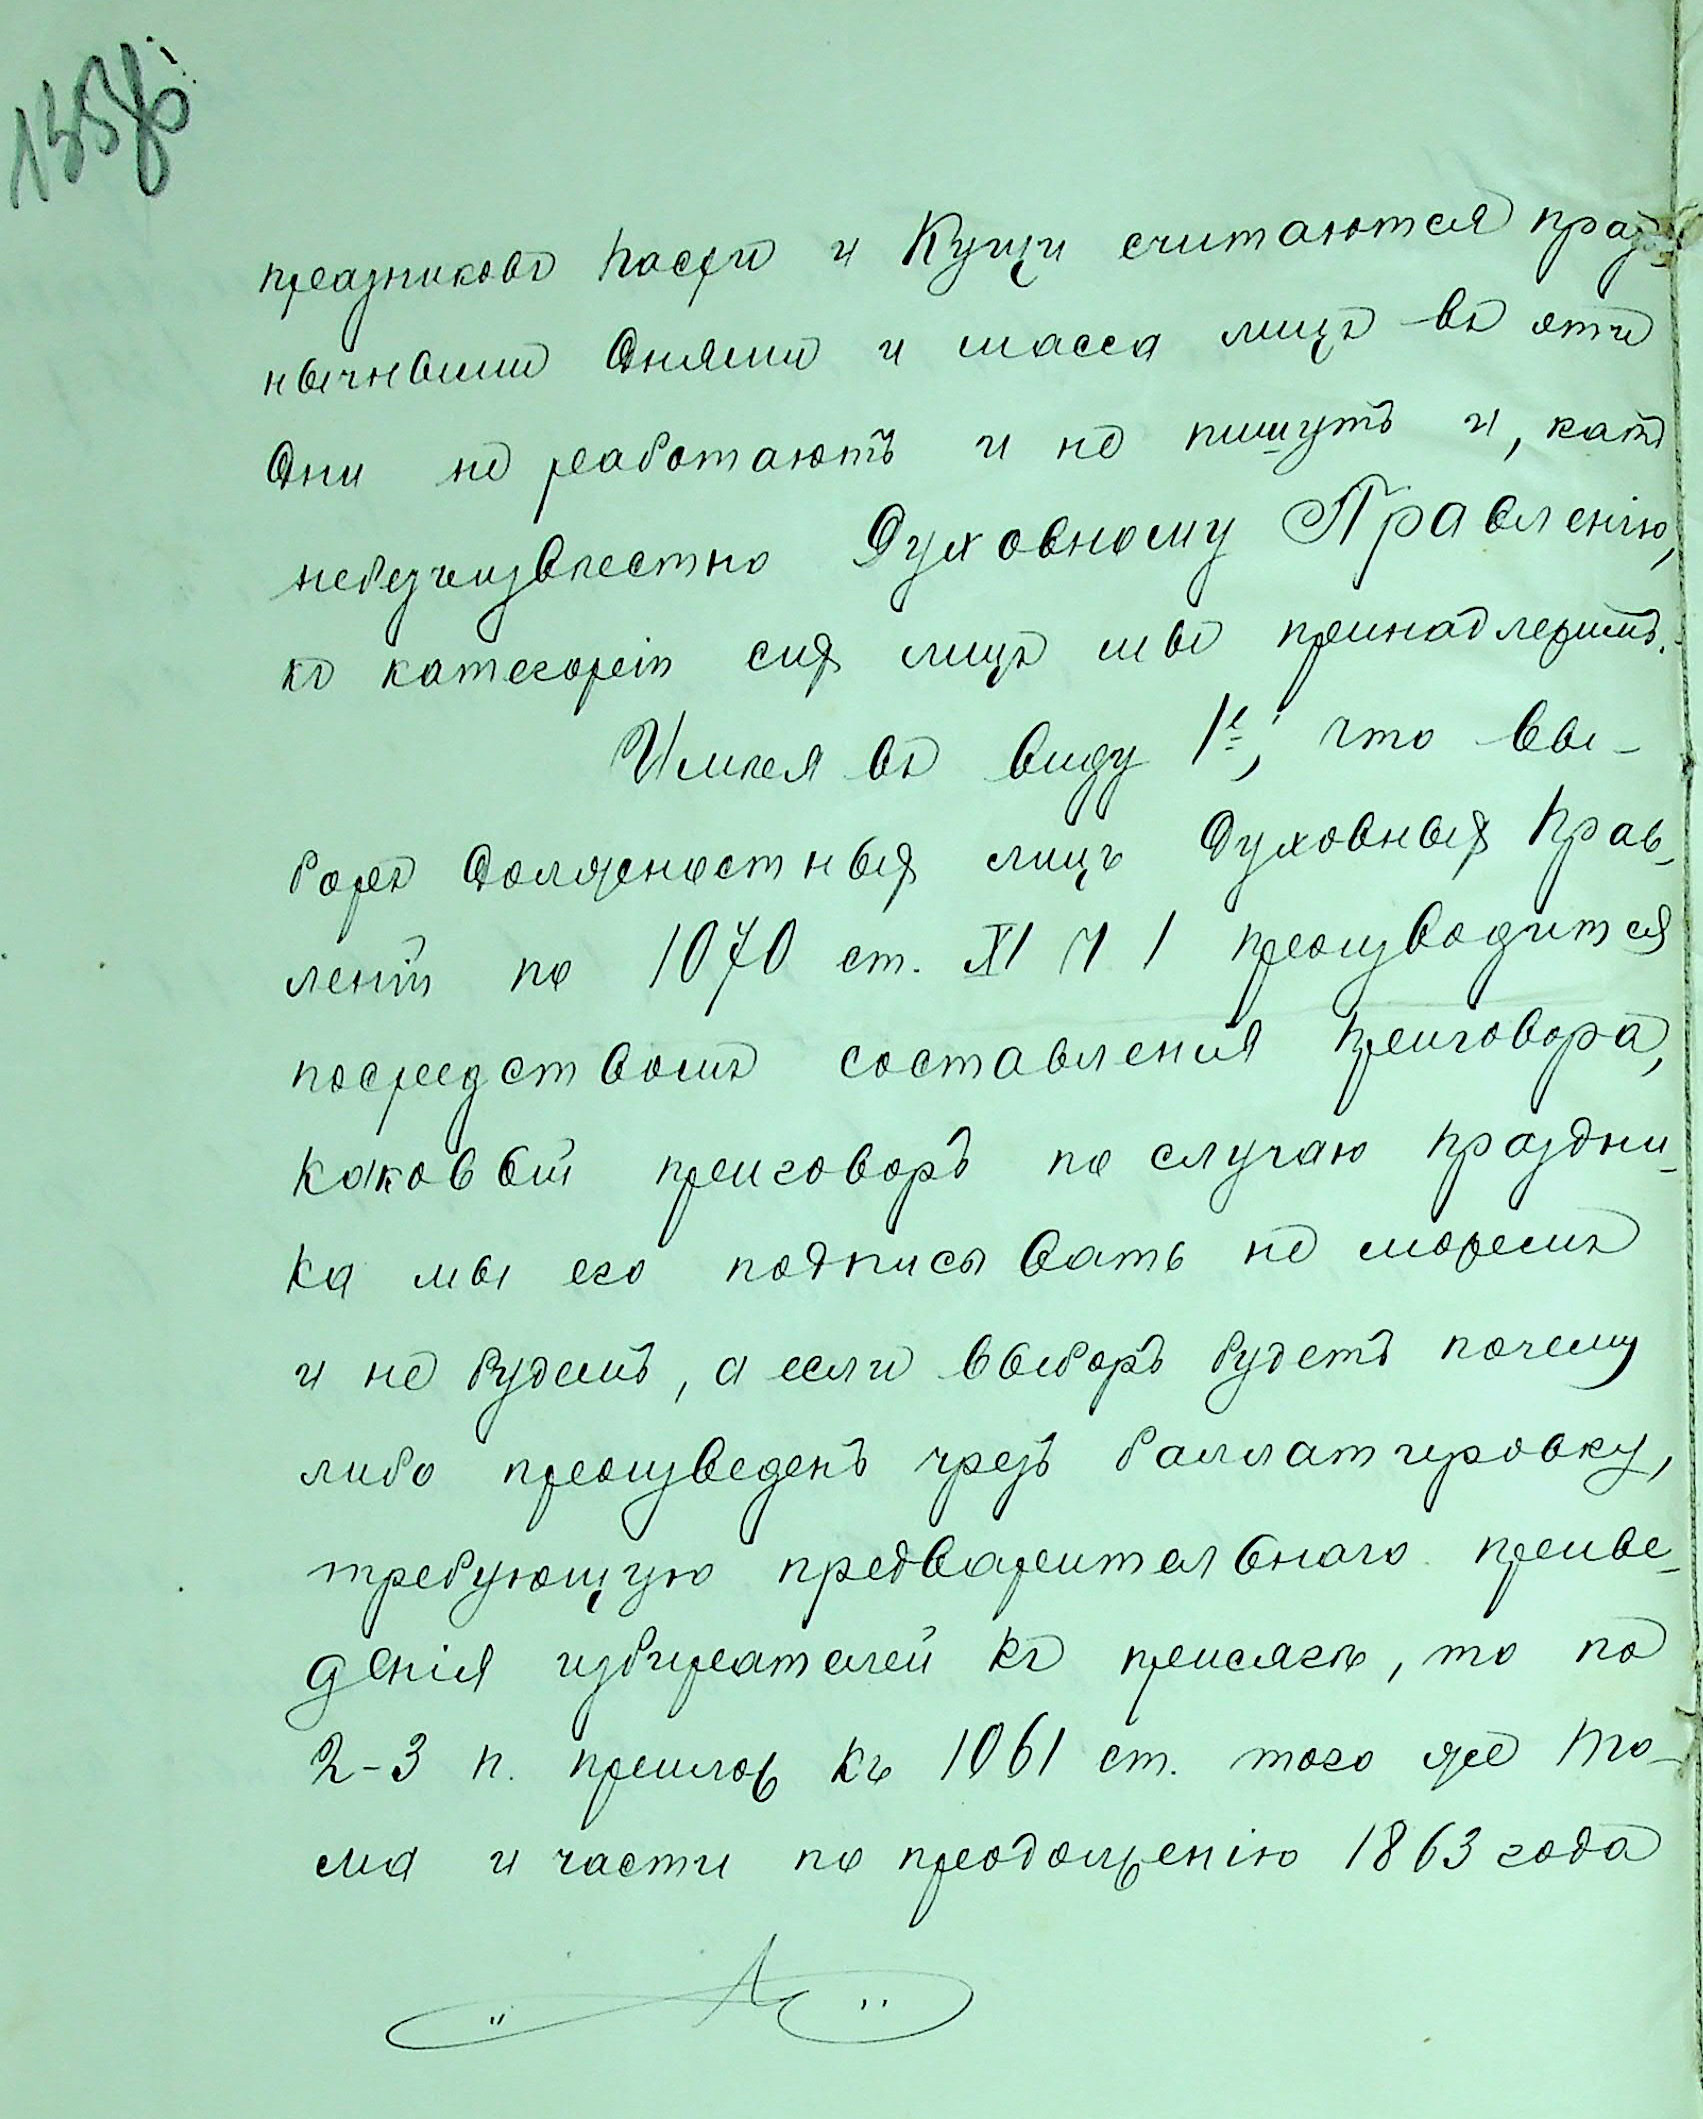 135об
праздниковъ Пасхи и Кущи считаются празд-
ничными днями и масса лицъ въ эти
дни не работаютъ и не пишутъ и, какъ
небезъизвѣстно Духовному Правленію,
къ категоріи сихъ лицъ мы принадлежимъ.
Имѣя въ виду 1е, что вы-
боръ должностныхъ лицъ Духовныхъ Прав-
леній по 1070 ст. XI ч 1 производится
посредствомъ составленія приговора,
каковый приговоръ по случаю праздни-
ка мы его подписывать не можемъ
и не будемъ, а если выборъ будетъ почему
либо произведенъ чрезъ баллатировку,
требующую предварительнаго приве-
денія избирателей къ присягѣ, то по
2-3 п. прилож къ 1061 ст. того же то-
ма и части по продолженію 1863 года